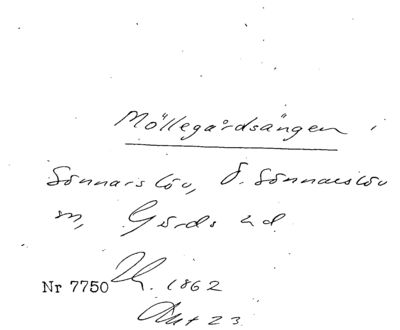 Möllegårdsängen i
Sönnarslöv, Ö. Sönnarslöv
sn, Gärds hd
Nr 7750 1862
Akt 23